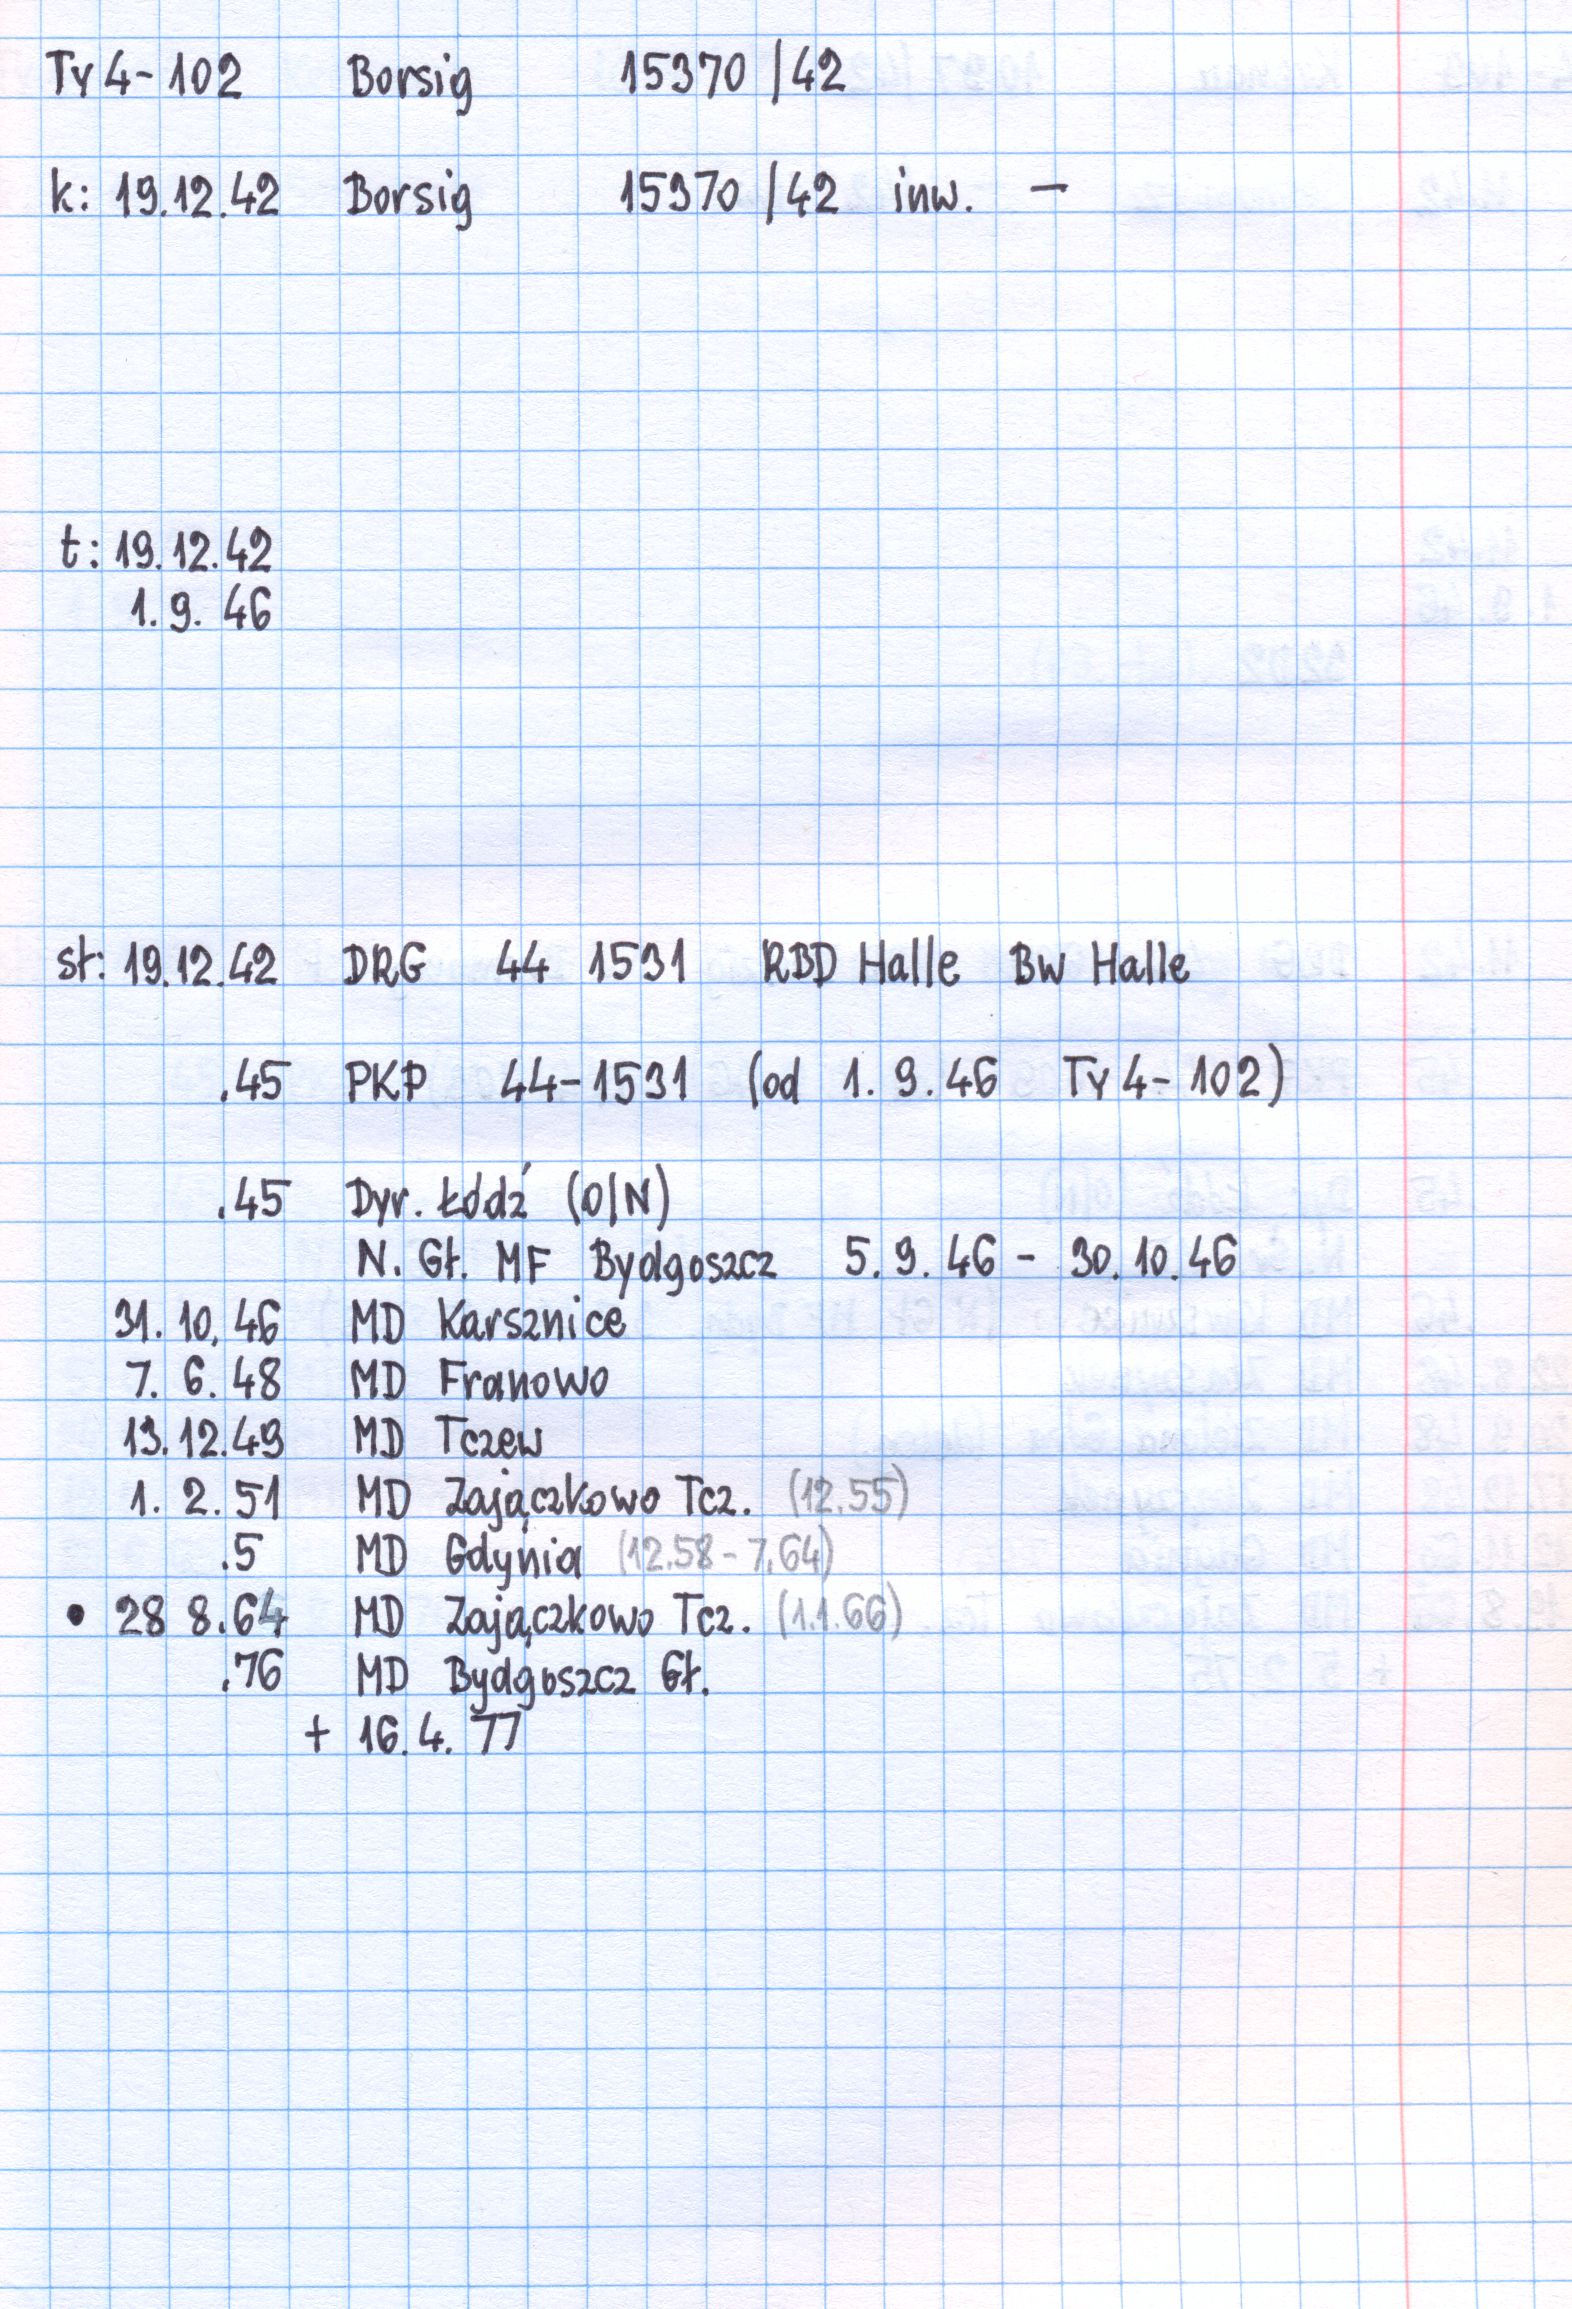 Ty4-102 Borsig 15370/42
k: 19.12.42 Borsig 15370/42 inw. —
t: 19.12.42
1.9.46
st: 19.12.42 DRG 44 1531 RBD Halle BW Halle
.45 PKP 44-1531 (od 1.9.46 Ty4-102)
.45 Dyr. Łódź (O/N)
N. Gł. MF Bydgoszcz 5.9.46 - 30.10.46
31.10.46 MD Karsznice
7.6.48 MD Franowo
13.12.49 MD Tczew
1.2.51 MD Zajączkowo Tcz. (12.55)
.5 MD Gdynia (12.58-7.64)
• 28 8.64 MD Zajączkowo Tcz. (1.1.66)
.76 MD Bydgoszcz Gł.
+ 16.4.77